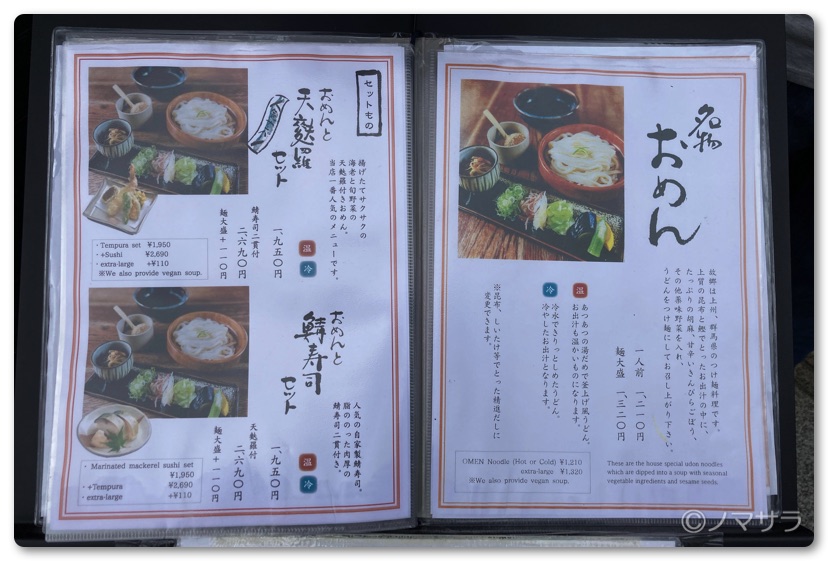 セットもの
おめんと
天麩羅
セット
揚げたてサクサクの
海老と旬野菜の
天麩羅付きおめん。
当店一番人気のメニューです。
温
冷
一、九五〇円
鯖寿司二貫付
二、六九〇円
麺大盛+一一〇円
・Tempura set ¥1,950
・+Sushi ¥2,690
・extra-large +¥110
※We also provide vegan soup.
おめんと
鯖寿司
セット
人気の自家製鯖寿司。
脂ののった肉厚の
鯖寿司二貫付き。
温
冷
一、九五〇円
天麩羅付
二、六九〇円
麺大盛+一一〇円
・Marinated mackerel sushi set
¥1,950
・+Tempura ¥2,690
・extra-large +¥110
名物
おめん
故郷は上州、群馬県のつけ麺料理です。
上質の昆布と鰹でとったお出汁の中に、
たっぷりの胡麻、甘辛いきんぴらごぼう、
その他薬味野菜を入れ、
うどんをつけ麺にしてお召し上がり下さい。
一人前 一、二一〇円
麺大盛 一、三二〇円
温
あつあつの湯だめで釜上げ風うどん。
お出汁も温かいものになります。
冷
冷水できりっとしめたうどん。
冷やしたお出汁となります。
※昆布、しいたけ等でとった精進だしに
変更できます。
OMEN Noodle (Hot or Cold) ¥1,210
extra-large ¥1,320
※We also provide vegan soup.
These are the house special udon noodles
which are dipped into a soup with seasonal
vegetable ingredients and sesame seeds.
©ノマサラ